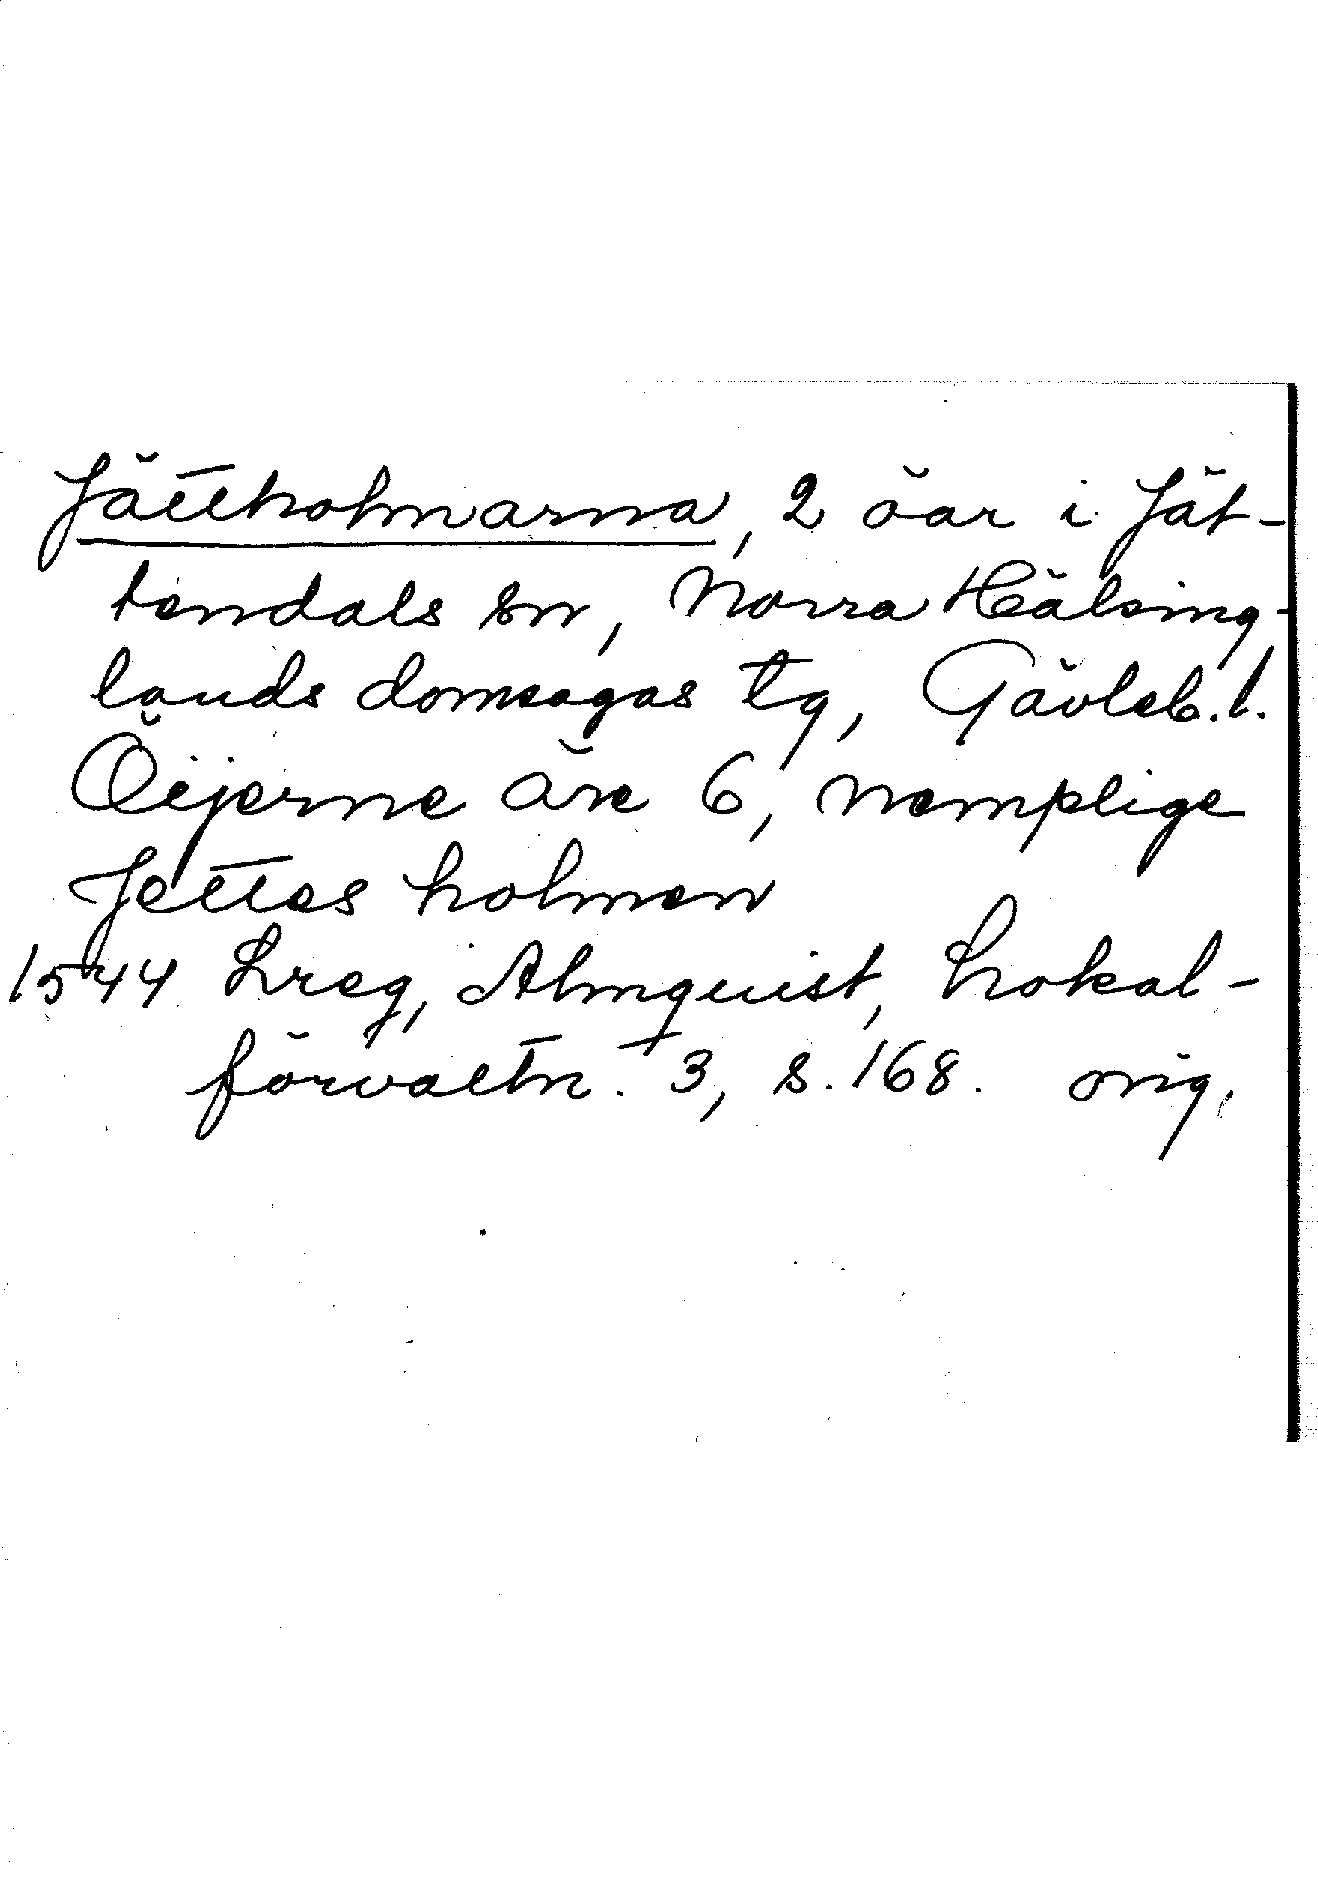 Jättholmarna, 2 öar i Jät-
tendals sn, Norra Hälsing-
lands domsagas tg, Gävleb. l.
Öijerne äre 6, nemplige
Jettes holmen
1544 Lreg, Almquist, Lokal-
förvaltn. 3, s. 168. orig.